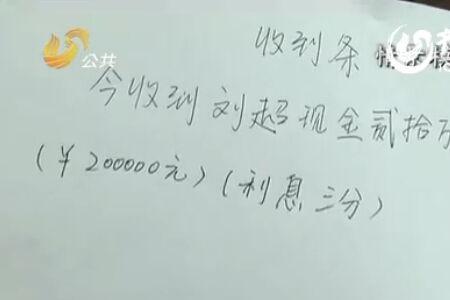 公共
收到条
今收到刘超现金贰拾万
(￥200000元)(利息三分)